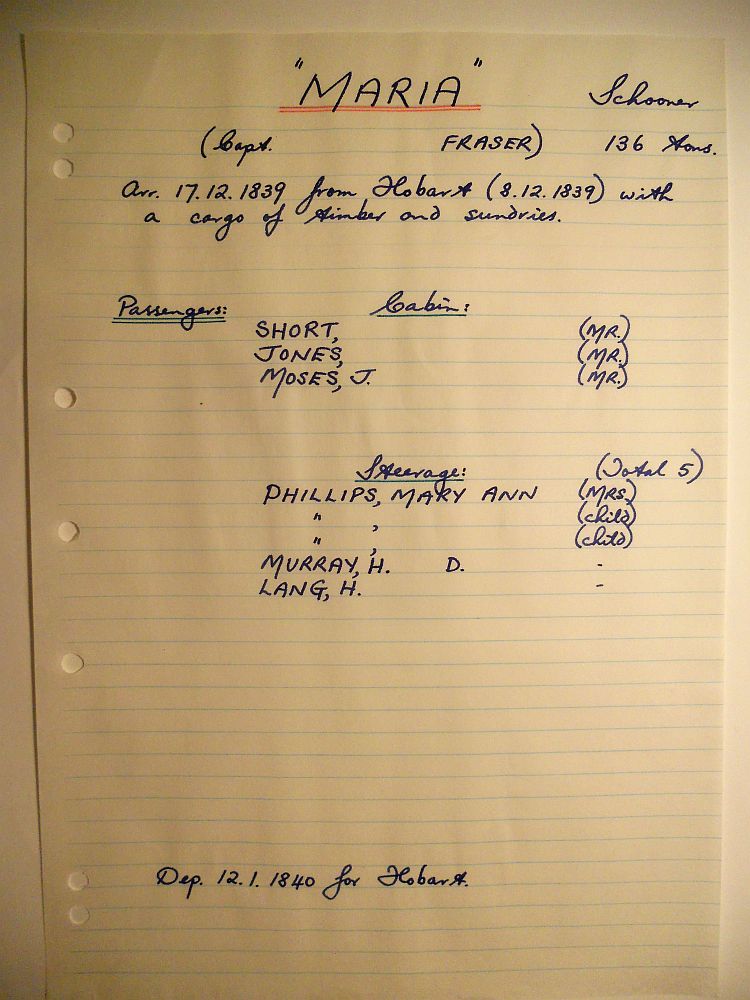 "MARIA" Schooner
(Capt. FRASER) 136 tons.
Arr. 17.12.1839 from Hobart (8.12.1839) with
a cargo of timber and sundries.
Passengers: Cabin:
SHORT, (MR.)
JONES, (MR.)
MOSES, J. (MR.)
Steerage: (Total 5)
PHILLIPS, MARY ANN (MRS.)
" , (child)
" , (child)
MURRAY, H. D. -
LANG, H. -
Dep. 12.1.1840 for Hobart.